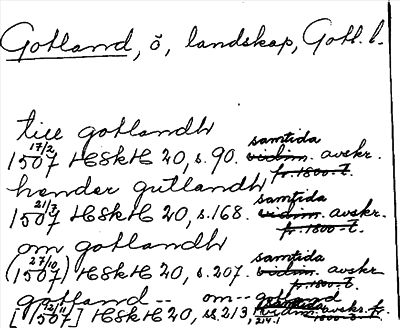 Gotland, ö, landskap, Gotl. l.
till gotlandh
17/2
1507 HSkH 20, s. 90. samtida vidim. avskr. fr. 1800-t.
hender gutlandh
21/3
1507 HSkH 20, s. 168. samtida vidim. avskr. fr. 1800-t.
om gotlandh
27/10
(1507) HSkH 20, s. 207. samtida vidim. avskr. fr. 1800-t.
gotland -- om --
12/11
[1507] HSkH 20, ss. 213, 214. avskr. fr. 1800-t.